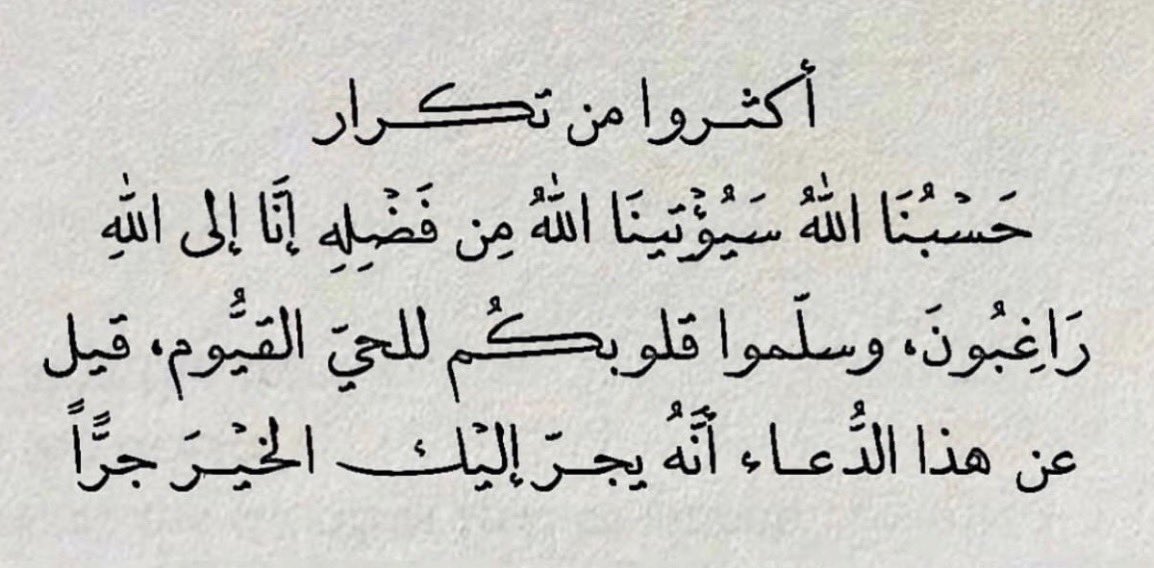 أكثروا من تكرار
حَسْبُنَا اللهُ سَيُؤْتِينَا اللهُ مِن فَضْلِهِ إنَّا إلى اللهِ
رَاغِبُونَ، وسلّموا قلوبكُم للحيّ القيُّوم، قيل
عن هذا الدُّعاء أنَّهُ يجرّ إليْك الخيْرَ جرًّاً